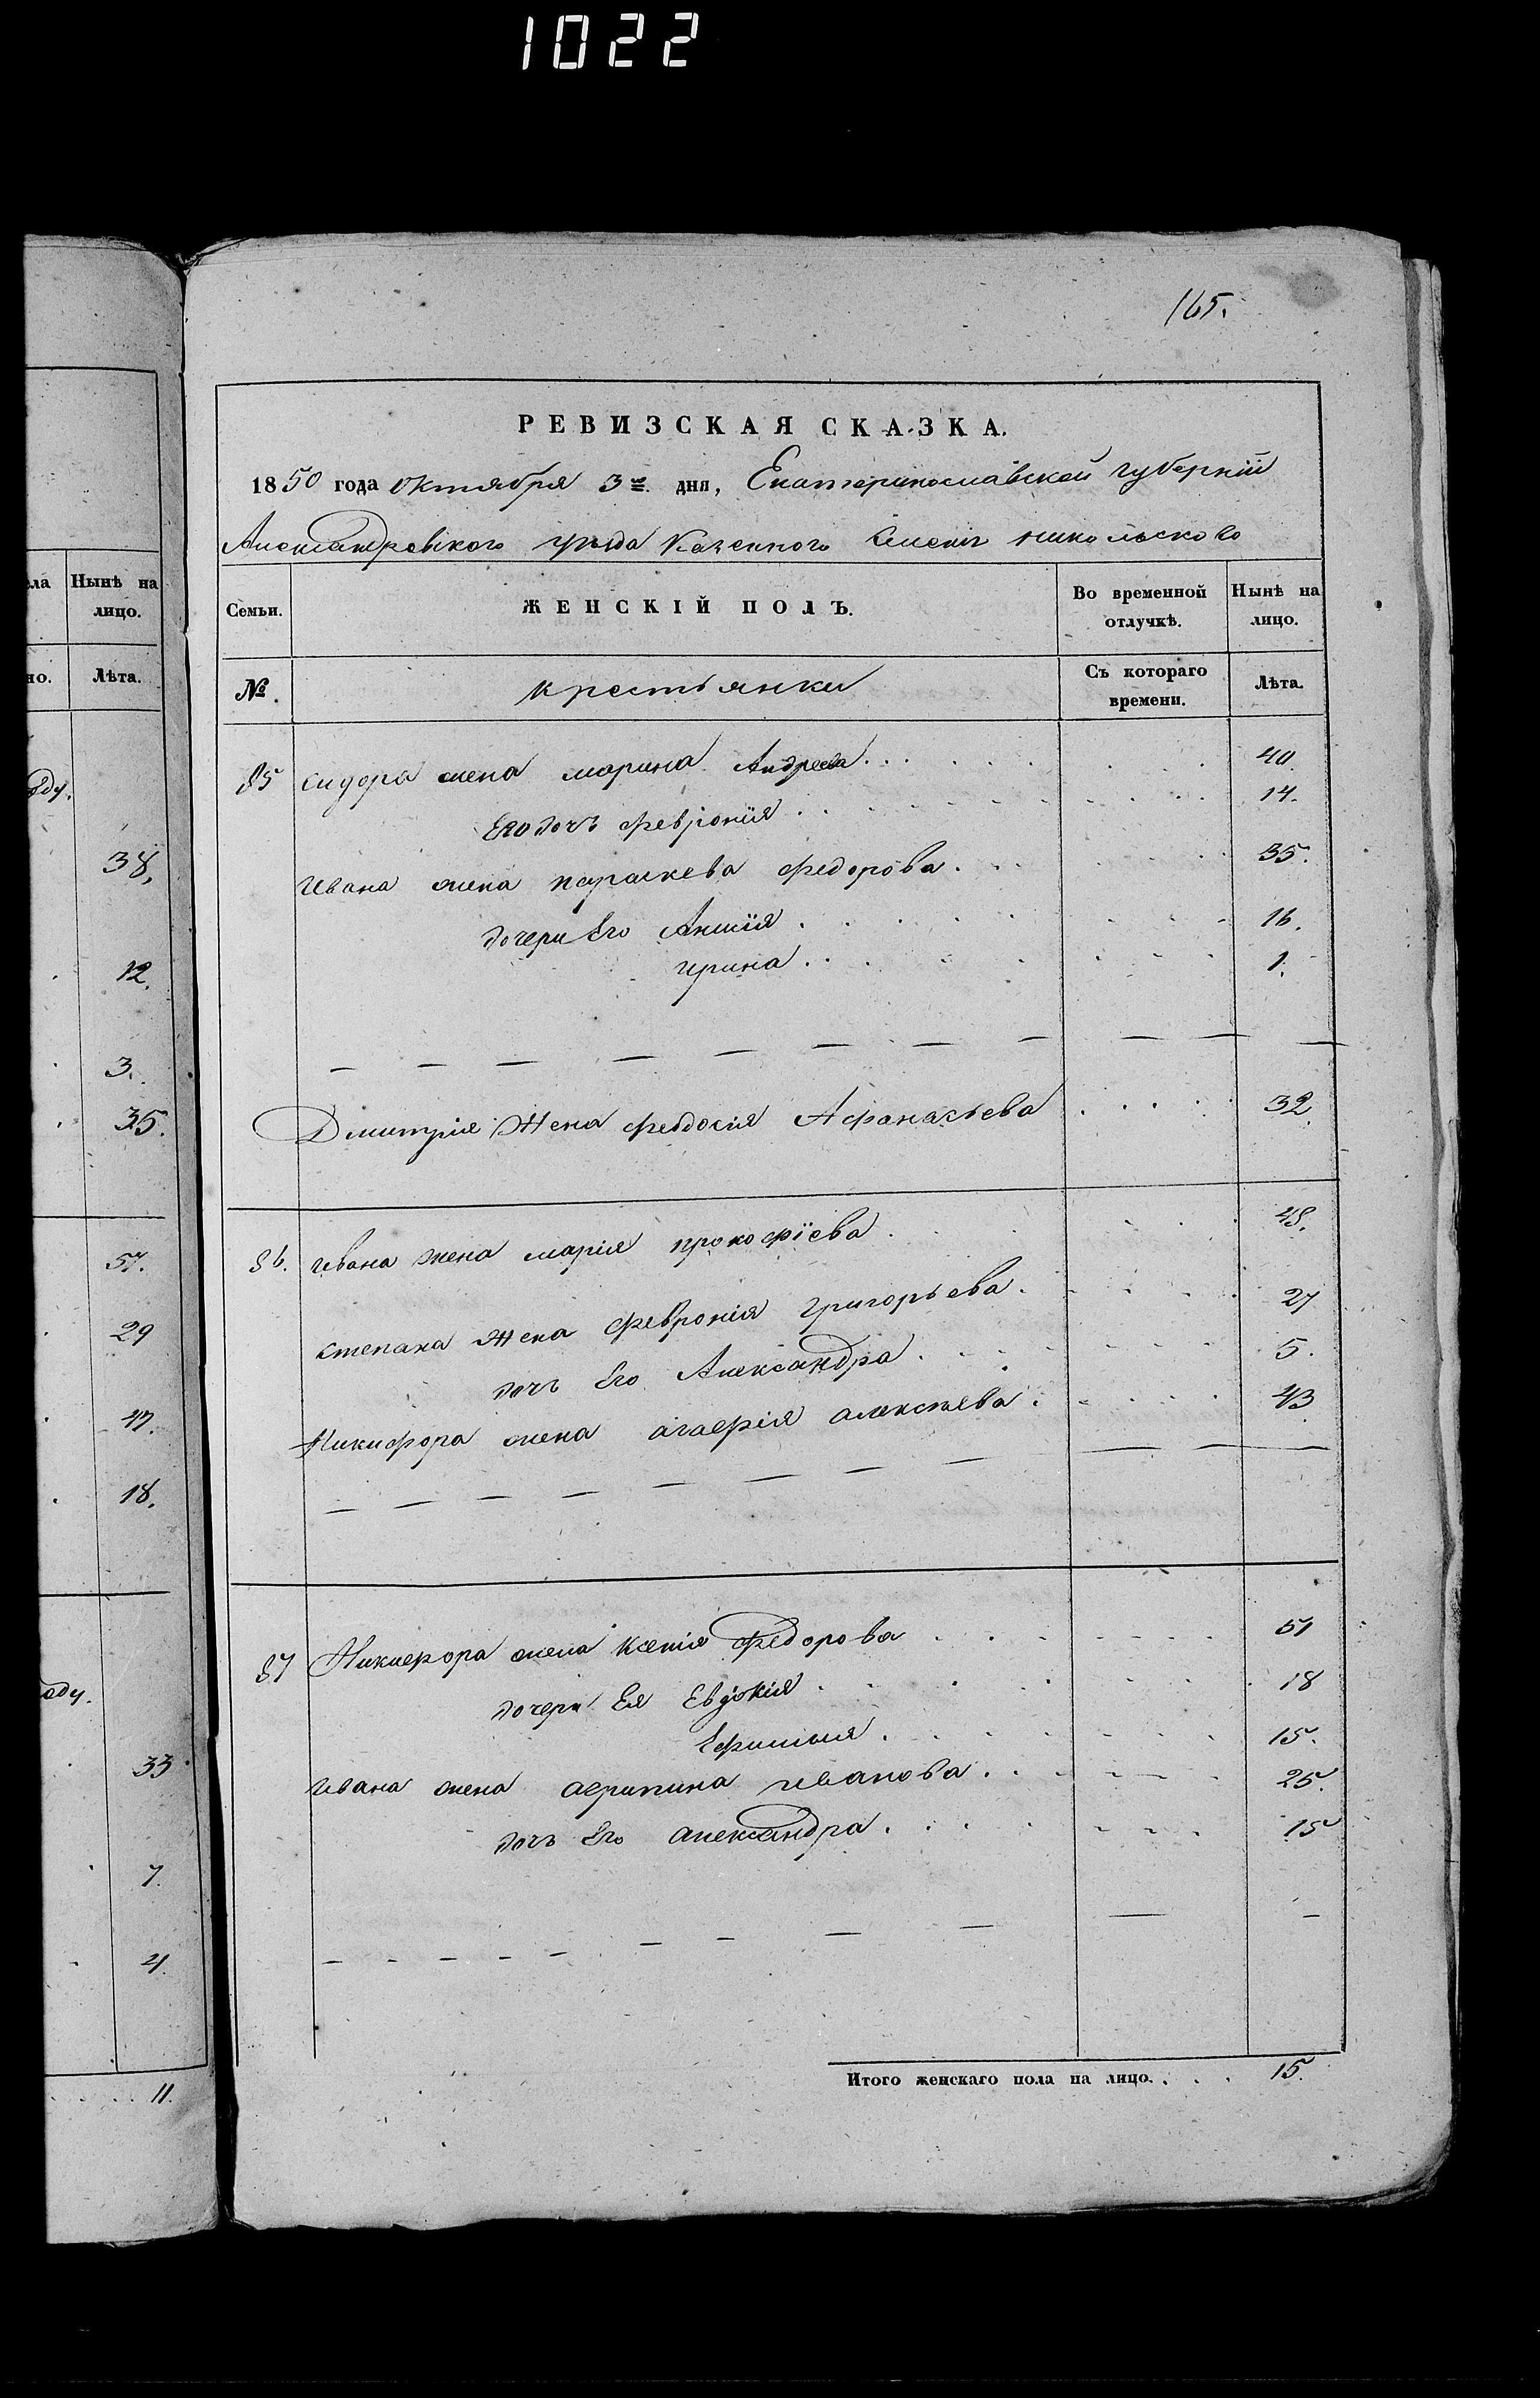 1022
165.
РЕВИЗСКАЯ СКАЗКА.
1850 года Октября 3го дня, Екатеринославской губернiи
Александровского уезда Казенного Селенiя никольского
Семьи. ЖЕНСКIЙ ПОЛЪ. Во временной отлучкѣ. Нынѣ на лицо.
№. крестьянки Съ котораго времени. Лѣта.
85 Сидора жена марина Андреева 40
Его дочь феврониiя 14.
Ивана жена параскева федорова 35.
дочери Его Анисiя 16.
ирина 1.
Дмитрiя Жена феодосiя Афанасьева 32
86. Ивана жена марiя прокофiева 48.
степана жена феврониiя григорьева 27
дочь Его Александра 5.
Никифора жена агафiя алексѣева 43
87 Никифора жена Ксенiя федорова 51
дочери Ея Евдокiя 18
Ефимия 15.
ивана жена агрипина иванова 25.
дочь Его александра 15
Итого женскаго пола на лицо. 15.
ла Нынѣ на лицо.
но. Лѣта.
оду.
38,
12.
3.
35.
57.
29
47.
18.
оду.
33
7.
4.
11.